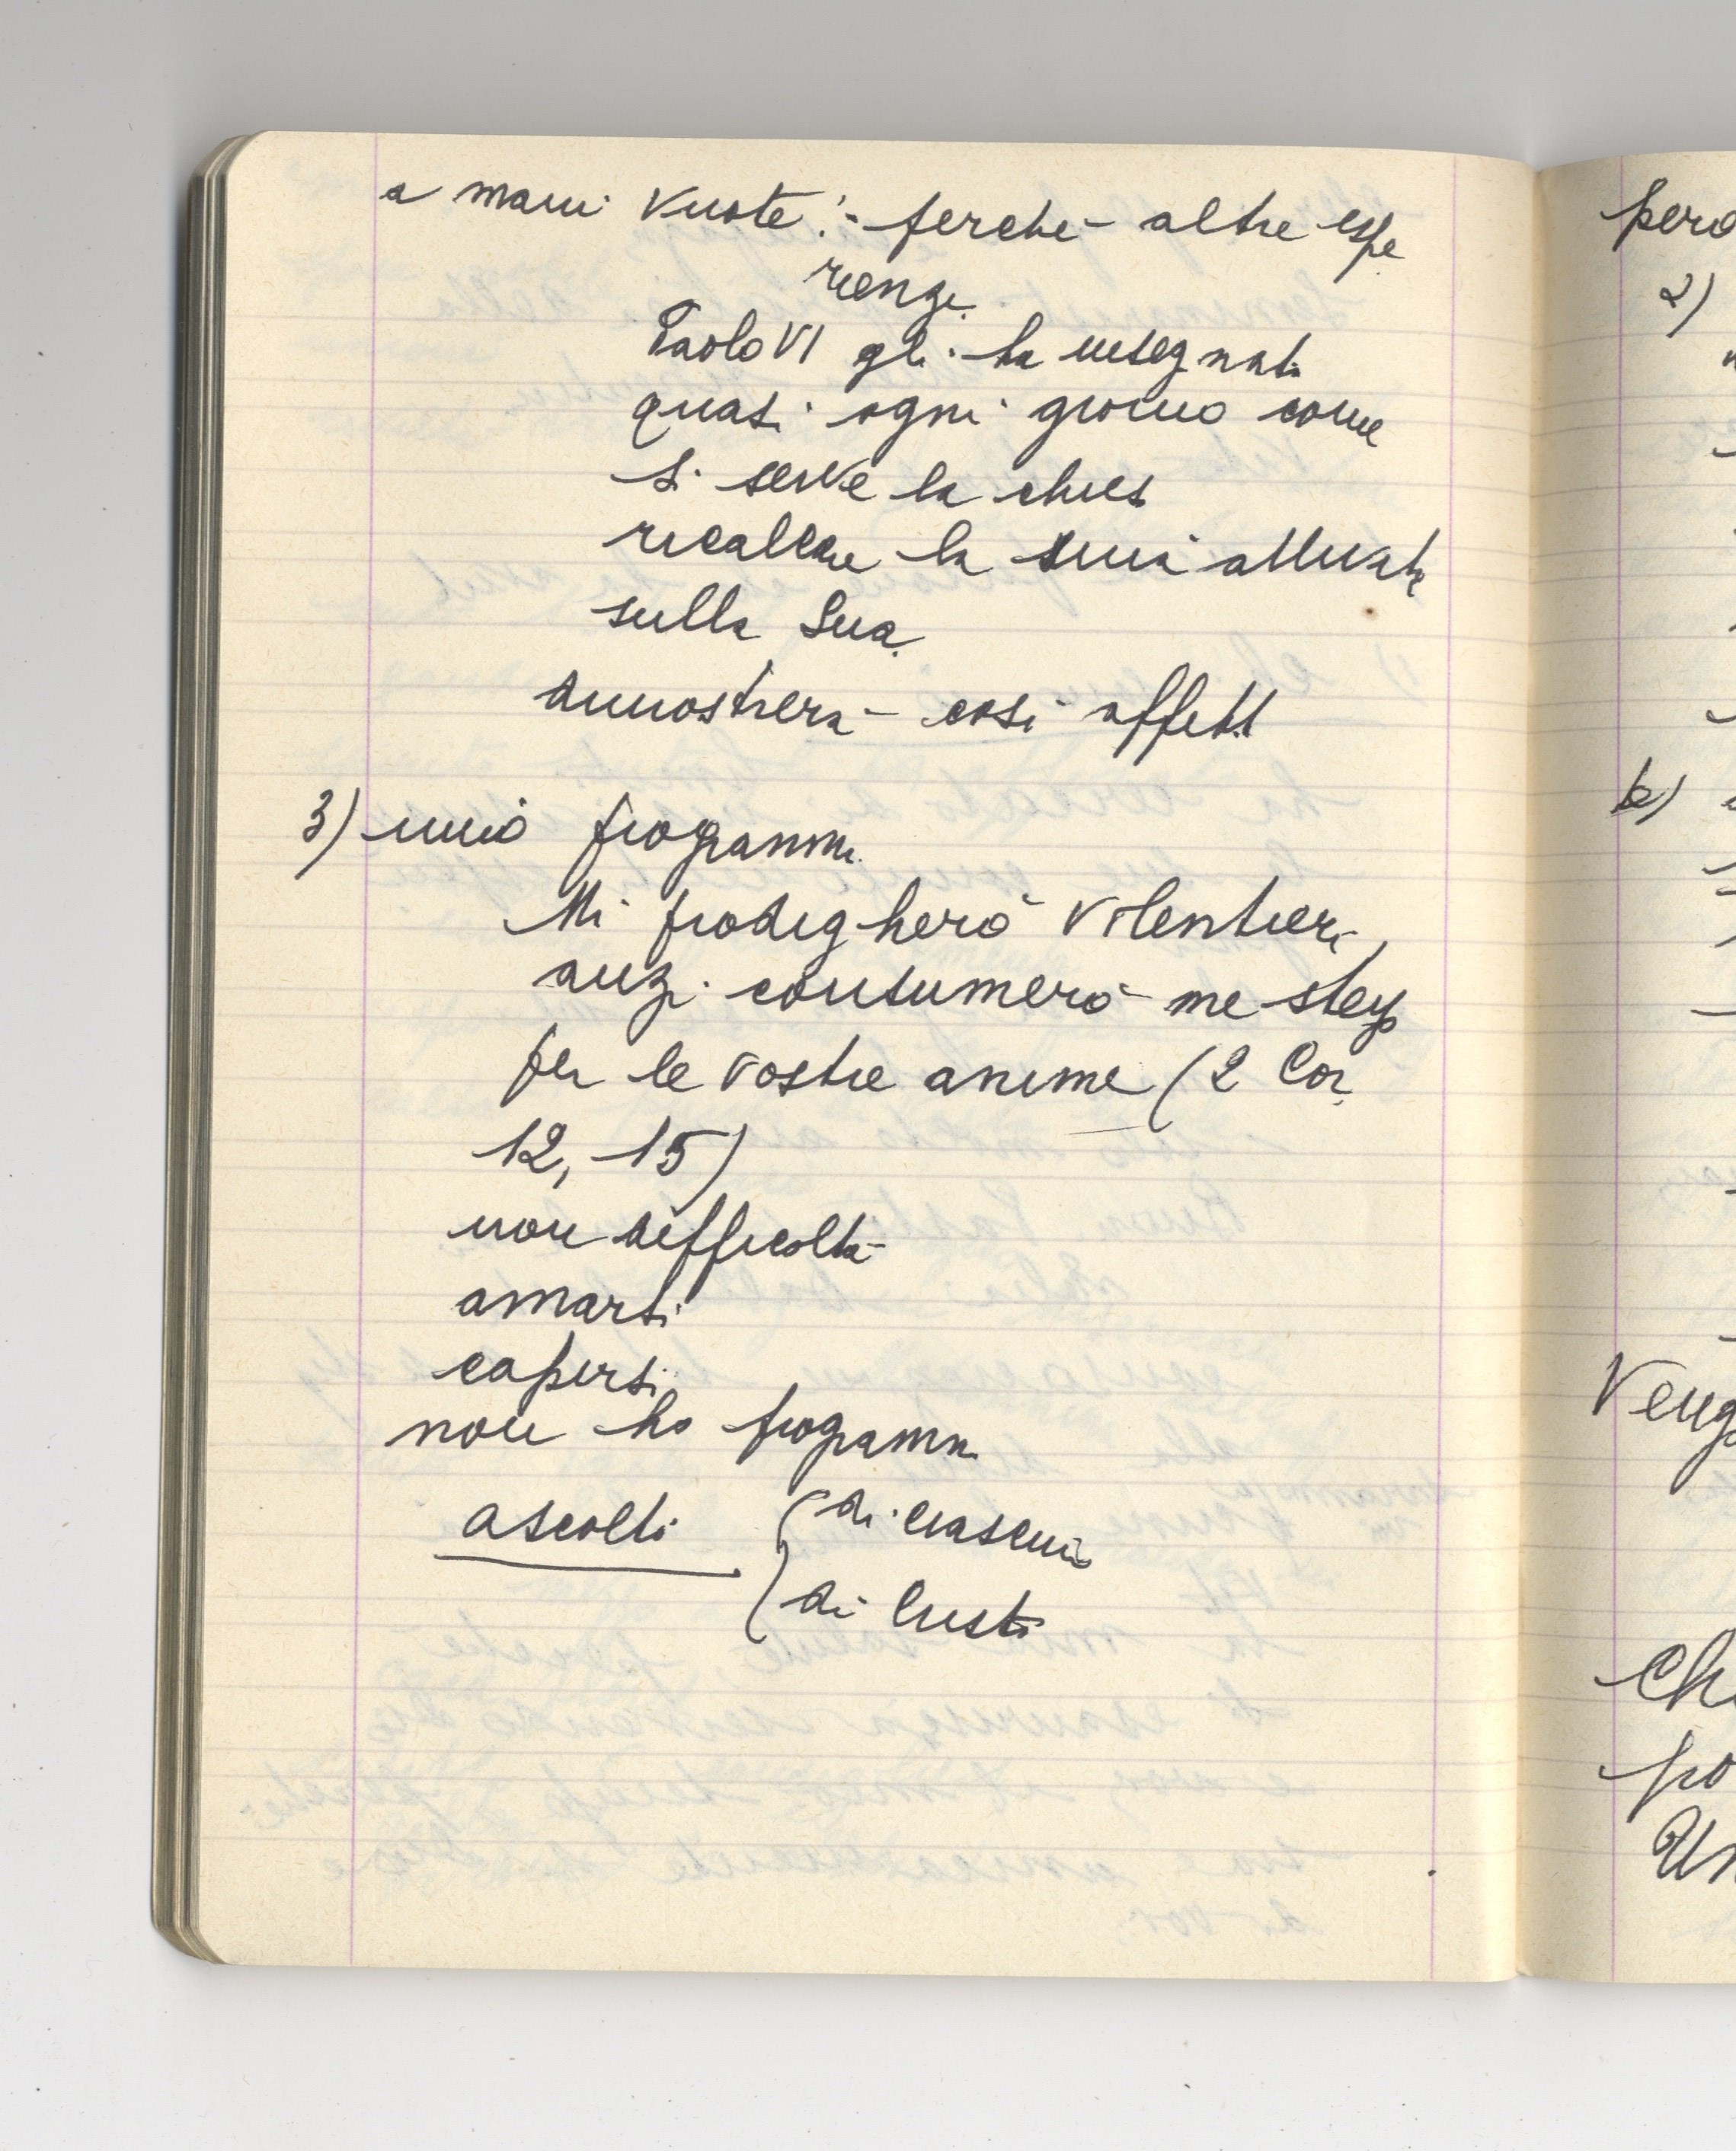 a mani vuote: - perché altre espe
rienze
Paolo VI gli ha insegnato
quasi ogni giorno come
si serve la chiesa
ricalcare la mia attività
sulla Sua.
dimostrerà così affetto
3) mio programma
Mi prodigherò volentieri,
anzi consumerò me stesso
per le vostre anime (2 Cor
12, 15)
non difficoltà
amarsi
capirsi
non ho programmi
ascolto { di ciascuno
di Cristo
pero
2)
b)
Veng
Chi
po
Un